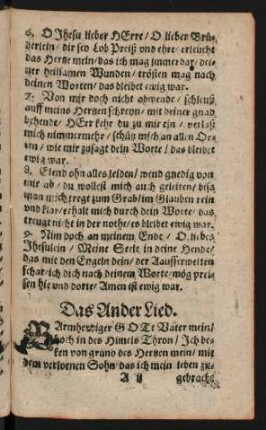 6. O Jhesu lieber HErre/ O lieber Brü-
derlein/ dir sey Lob Preiß vnd ehre/ erleucht
das Hertze mein/ das ich mag jmmerdar/ dei-
ner heilsamen Wunden/ trösten mag nach
deinen Worten/ das bleibet ewig war.
7. Von mir doch nicht abwende/ schleuß
auff meins Hertzen schreyn/ mit deiner gnad
behende/ HErr kehr du zu mir ein/ verlaß
mich nimmermehr/ schütz mich an allen Or-
ten/ wie mir zusagt dein Worte/ das bleibet
ewig war.
8. Elend ohn alles leiden/ wend gnedig von
mir ab/ du wollest mich auch geleiten/ biß
man mich tregt zum Grab/ im Glauben rein
vnd klar/ erhalt mich durch dein Worte/ das
treugt nicht in der nothe/ es bleibet ewig war.
9. Nim doch an meinem Ende/ O liebes
Jhesulein/ Meine Seele in deine Hende/
das mit den Engeln dein/ der Ausserwelten
schar/ ich dich nach deinem Worte/ mög prei-
sen hie vnd dorte/ Amen ist ewig war.
Das Ander Lied.
BArmhertziger GOTt Vater mein/
hoch in des Himels Thron/ Ich be-
ken von grund des Hertzen mein/ mit
dem verlornen Sohn/ das ich mein leben zu-
A ij gebracht